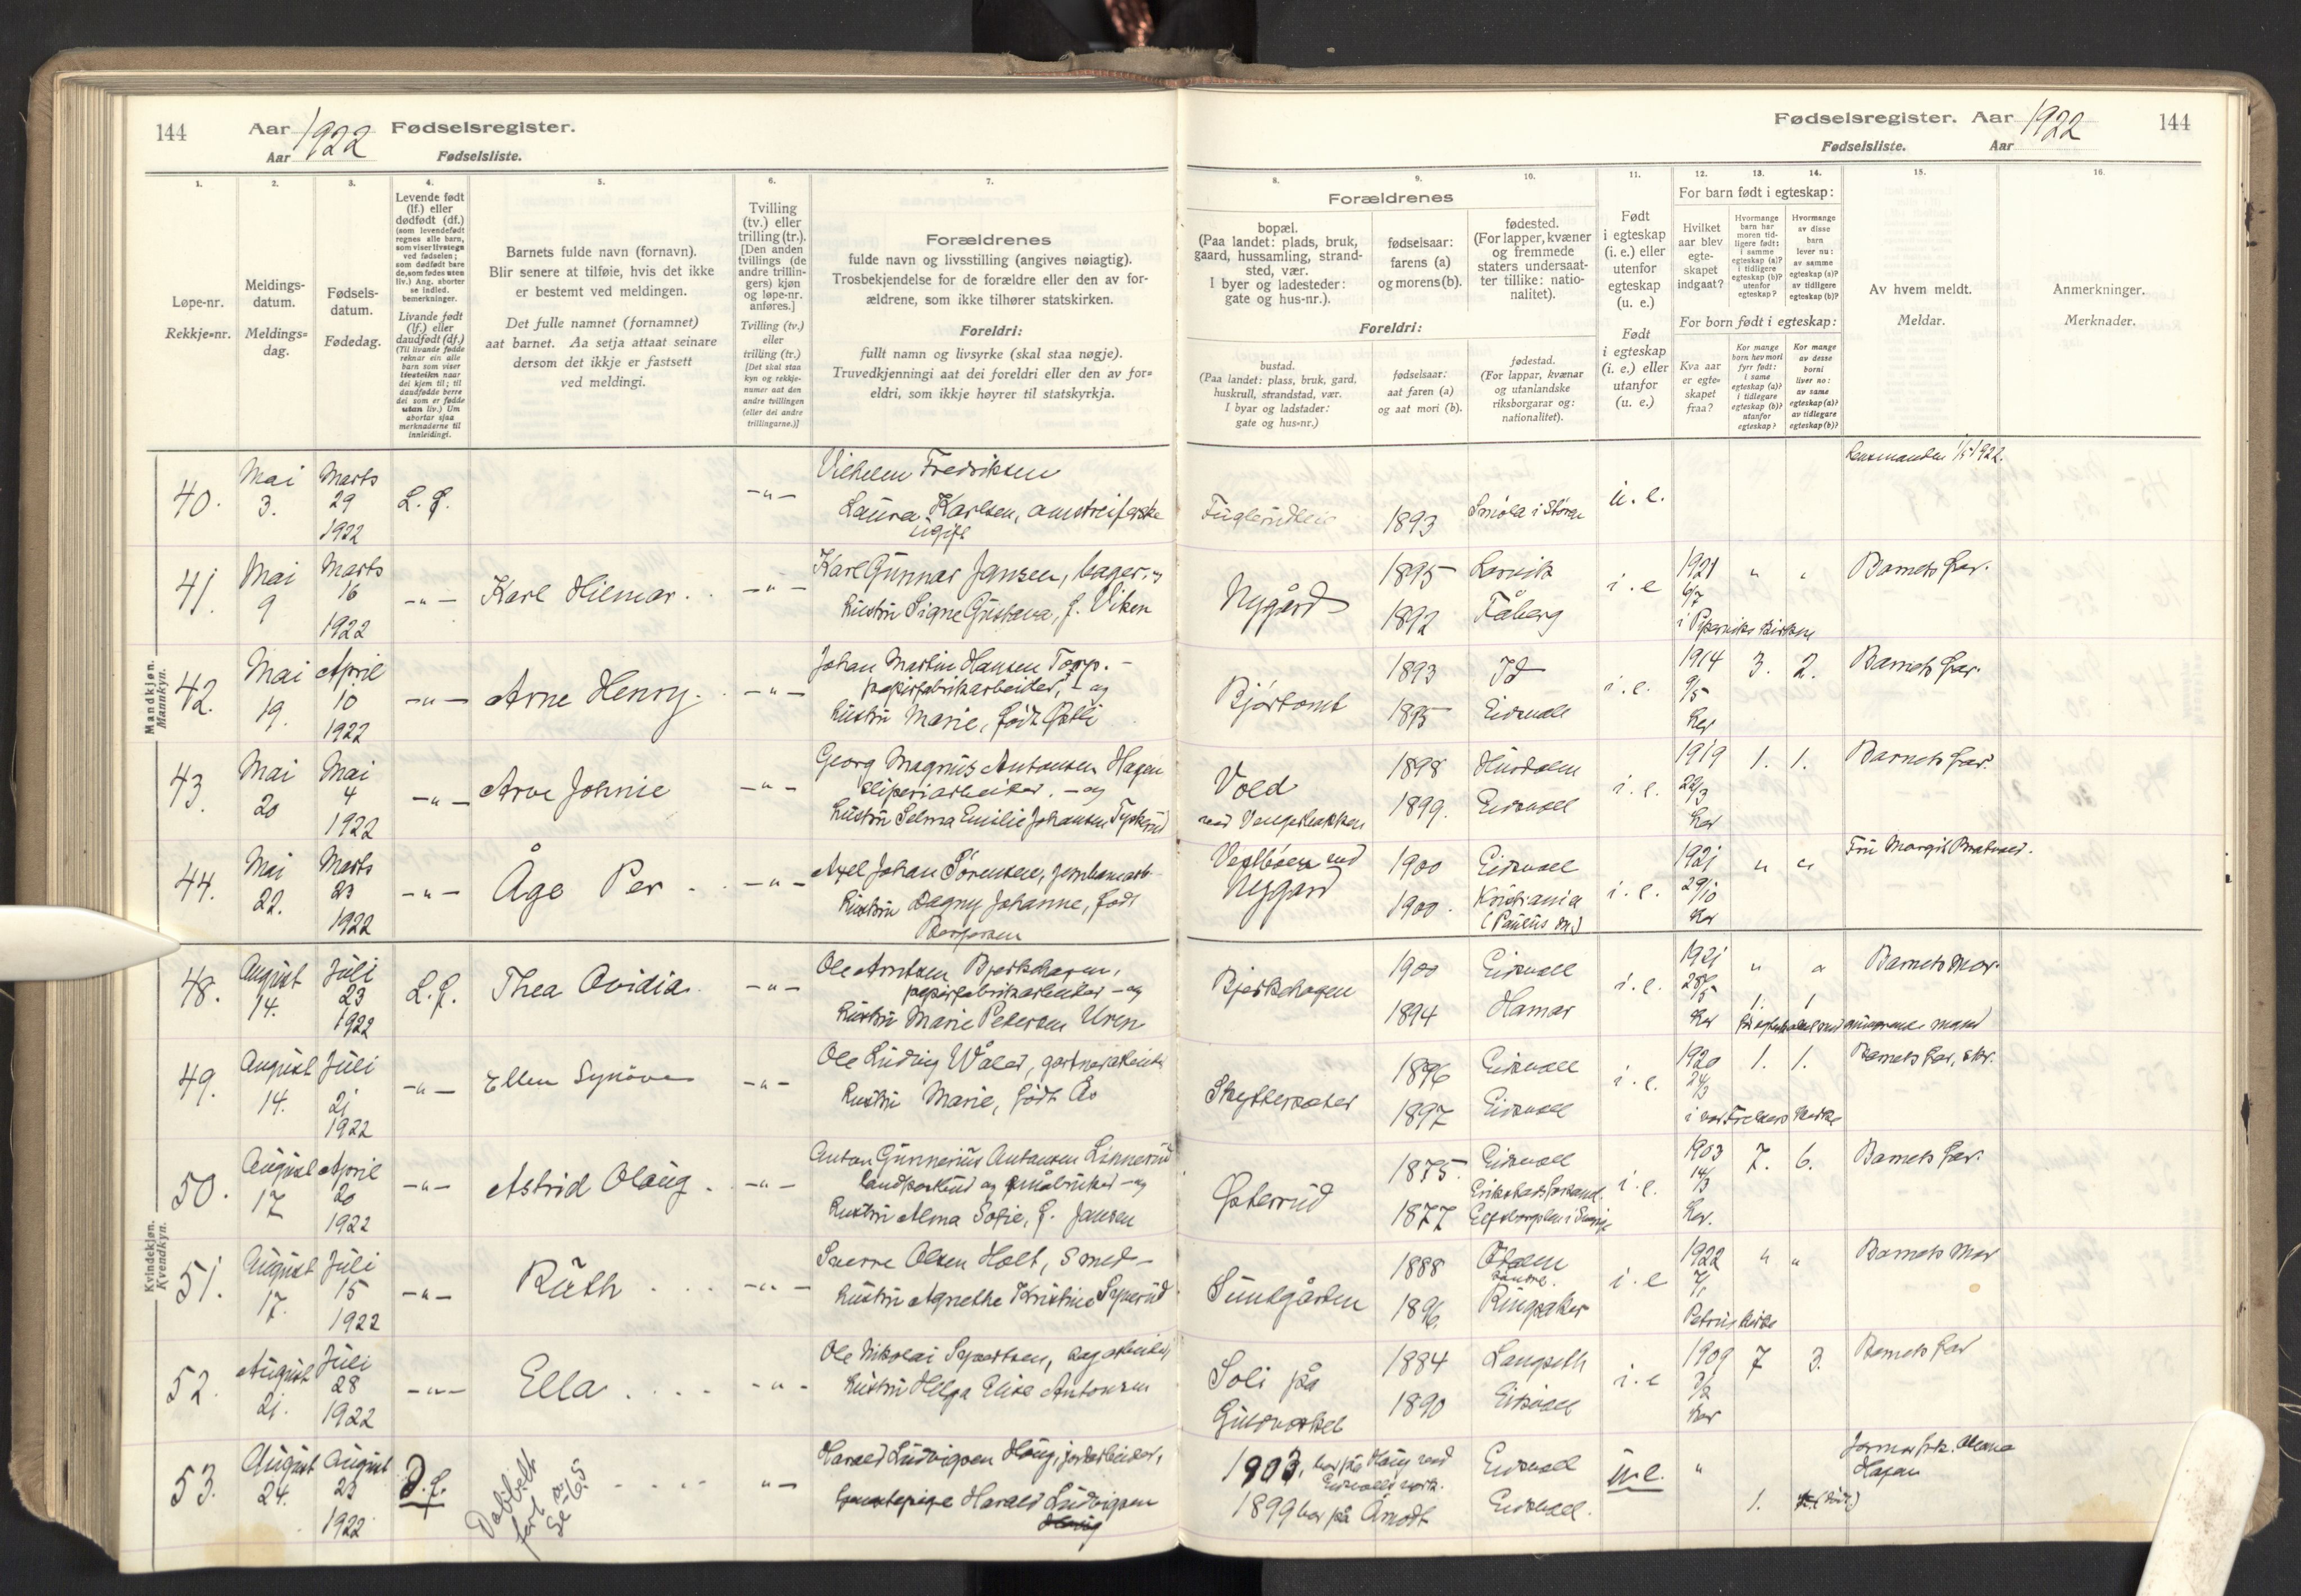 144
Aar 1922 Fødselsregister.
Aar
Fødselsliste.
1.
2.
3.
4.
5.
6.
7.
Løpe-nr.
Rekkje=nr.
Meldings-
datum.
Meldings=
dag.
Fødsels-
datum.
Fødedag.
Levende født
(lf.) eller
dødfødt (df.)
(som levendefødt
regnes alle barn,
som viser livstegn
ved fødselen;
som dødfødt bare
de, som fødes uten
liv.) Ang. aborter
se indled.
bemerkninger.
Livande født
(lf.) eller
daudfødt (df.)
(Til livande fødde
reknar ein alle
barn som viser
livsteikn naar
dei kjem til; til
daudfødde berre
dei som er fødde
utan liv.) Um
abortar sjaa
merknaderne til
innleidingi.
Barnets fulde navn (fornavn).
Blir senere at tilføie, hvis det ikke
er bestemt ved meldingen.
Det fulle namnet (fornamnet)
aat barnet. Aa setja attaat seinare
dersom det ikkje er fastsett
ved meldingi.
Tvilling
(tv.) eller
trilling (tr.).
[Den anden
tvillings (de
andre trillin-
gers) kjøn
og løpe-nr.
anføres.]
Tvilling (tv.)
eller
trilling (tr.)
[Det skal staa
kyn og rekkje-
numer aat den
andre tvillingen
(eller dei andre
trillingarne.)]
Forældrenes
fulde navn og livsstilling (angives nøiagtig).
Trosbekjendelse for de forældre eller den av for-
ældrene, som ikke tilhører statskirken.
Foreldri:
fullt namn og livsyrke (skal staa nøgje).
Truvedkjenningi aat dei foreldri eller den av for=
eldri, som ikkje høyrer til statskyrkja.
Mandkjøn.
Mannkyn.
40. Mai 3. Marts 29 1922 L.f. -"- Vilhelm Fredriksen
Laura Karlsen, omstreiferske
ugift
41. Mai 9 Marts 16 1922 -"- Karl Hilmar. -"- Karl Gunnar Jansen, bager, og
hustru Signe Gustava, f. Viken
42. Mai 19. April 10 1922 -"- Arne Henry. -"- Johan Martin Hansen Torp. -
papirfabrikarbeider, - og
hustru Marie, født
43. Mai 20 Mai 4 1922 -"- Arve Johnie -"- Georg Magnus Antonsen Hagen
sliperiarbeider. - og
hustru Selma Emilie Johansen
44. Mai 22. Marts 23 1922 -"- Åge Per -"- Axel Johan Sørensen,
hustru Dagny Johanne, født
Kvindekjøn.
Kvendkyn.
48. August 14. Juli 23 1922 L.f. Thea Ovidia. -"- Ole Arntsen Bjerkehagen,
papirfabrikarbeider - og
hustru Marie Petersen Uren
49. August 14. Juli 21 1922 -"- Ellen Synöve -"- Ole Ludvig Wåler,
hustru Marie, født Ås
50. August 17 April 20 1922 -"- Astrid Olaug. -"- Anton Gunnerius Antonsen Linnerud
landpostbud og småbruker - og
hustru Alma Sofie, f. Jansen
51. August 17. Juli 15 1922 -"- Ruth -"- Sverre Olsen Holt, smed -
hustru Agnethe Kristine
52. August 21. Juli 28 1922 -"- Ella -"- Ole Nikolai Syvertsen,
hustru Helga Elise Antonsen
53. August 24. August 23 1922 D.f. Dobbelt ført se s. 65 "- Harald Ludvigsen Haug, jordarbeider,
Harald Ludvigsen
Haug
Fødselsregister. Aar 1922 144
Fødselsliste. Aar
8.
9.
10.
11.
12.
13.
14.
15.
16.
Forældrenes
bopæl.
(Paa landet: plads, bruk,
gaard, hussamling, strand-
sted, vær.
I byer og ladesteder:
gate og hus-nr.).
fødselsaar:
farens (a)
og morens (b).
fødested.
(For lapper, kvæner
og fremmede
staters undersaat-
ter tillike: natio-
nalitet).
Foreldri:
bustad.
(Paa landet: plass, bruk, gard,
huskrull, strandstad, vær.
I byar og ladstader:
gate og hus-nr.)
fødselsaar:
aat faren (a)
og aat mori (b).
fødestad.
(For lappar, kvænar
og utanlandske
riksborgarar og:
nationalitet).
Født
i egteskap
(i. e.) eller
utenfor
egteskap
(u. e.)
Født
i egteskap
(i. e.) eller
utanfor
(u. e.)
For barn født i egteskap:
Hvilket
aar blev
egte-
skapet
indgaat?
Hvormange
barn har
moren tid-
ligere født:
i samme
egteskap (a)?
i tidligere
egteskap (b)?
utenfor
egteskap?
Hvormange
av disse
barn
lever nu:
av samme
egteskap (a)?
av tidligere
egteskap (b)?
For born født i egteskap:
Kva aar
er egte=
skapet
fraa?
Kor mange
born hev mori
fyrr født:
i same
egteskap (a)?
i tidlegare
egteskap (b)?
utanfor
egteskap?
Kor mange
av desse
borni
liver no:
av same
egteskap (a)?
av tidlegare
egteskap (b)?
Av hvem meldt.
Meldar.
Anmerkninger.
Merknader.
1893 Smöla i Stören u.e. Lensmanden 1/5 1922.
Nygård 1895 Larvik i.e 1921 6/7 " " Barnets far.
1892 Fåberg
Bjørtomt 1893 Id i.e. 1914 9/5 her 3. 2. Barnets far.
1895 Eidsvoll
Vold 1898 Hurdalen i.e. 1919 22/3 her 1. 1. Barnets far.
1899. Eidsvoll
ved
Nygård 1900 Eidsvoll i.e. 1921 29/10 her " " Fru Margit
1900. Kristiania
(Paulus m.)
Bjerkehagen 1900 Eidsvoll i.e. 1921 28/5 her " " Barnets mor.
1894 Hamar 1. 1
Skytterseter 1896 Eidsvoll i.e. 1920 24/3 1. 1. Barnets far,
1897 Eidsvoll i vor Frelsers Kirke
Østerud 1875. Eidsvoll i.e. 1903 14/3 her. 7. 6. Barnets far.
1877
Sundgården 1888 i.e 1922 7/1 " " Barnets mor
1896. Ringsaker Petrus kirke
Soli på
Guldverket 1884 Langseth i.e 1909 3/2 her 7 3. Barnets far
1890 Eidsvoll
1903, bor på Haug ved
Eidsvolds verk. Eidsvoll u.e. " Jormor frk.
Hagan
1899 bor på Åmodt Eidsvoll. 1. (död)